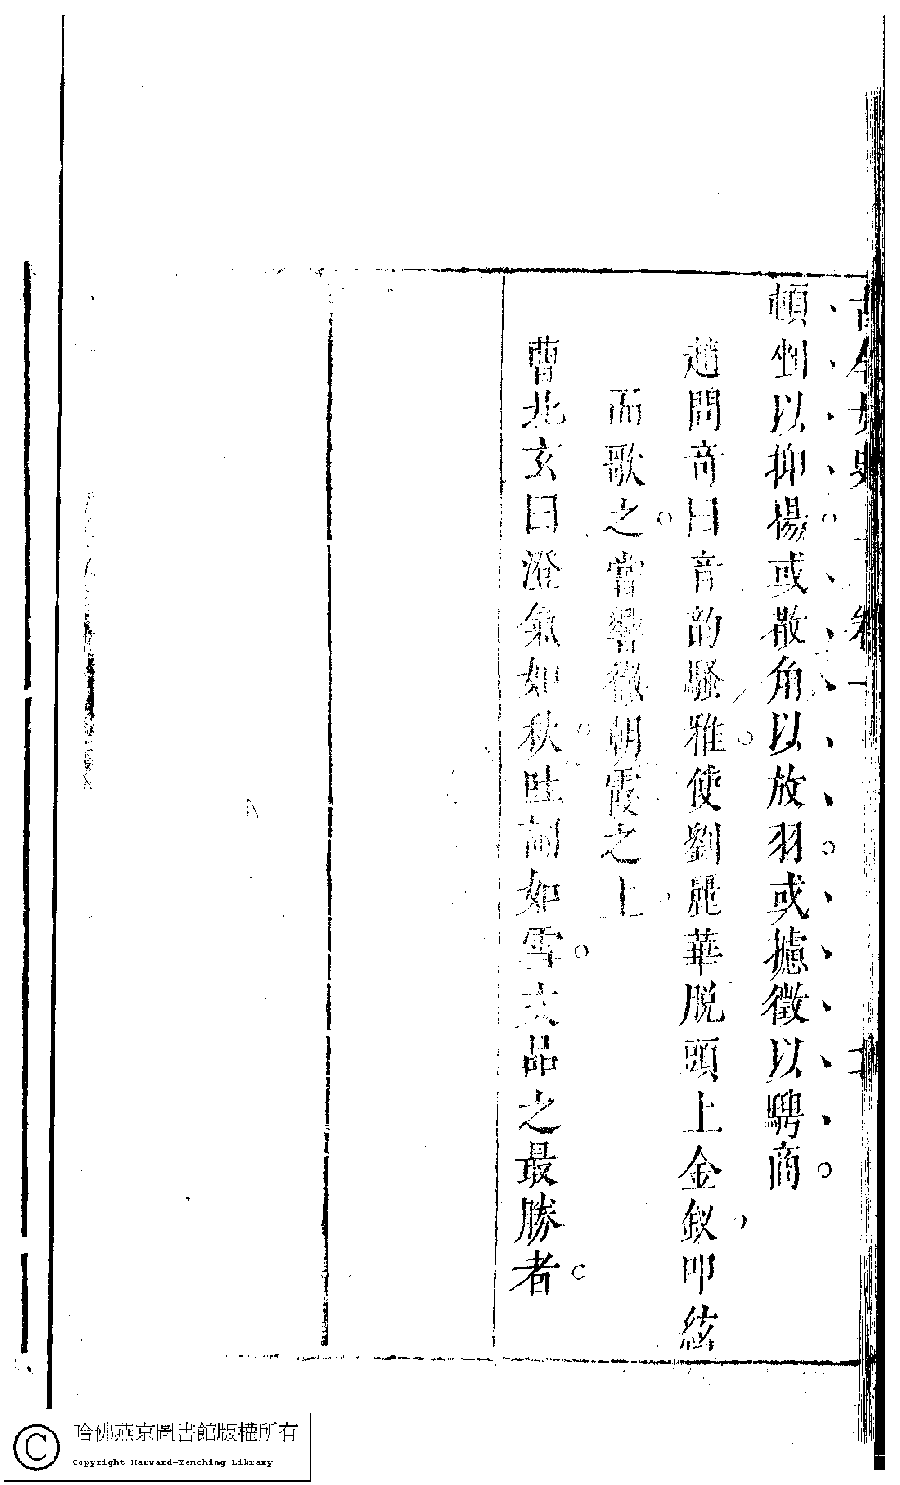 頓剉以抑揚或散角以放羽或攄徵以騁商
趙問奇曰音韵騷雅使劉麗華脱頭上金釵叩絃
而歌之當響徹朝霞之上
曹北玄曰澄氣如秋吐詞如雪文品之最勝者
哈佛燕京圖書館版權所有
Copyright Harvard-Yenching Library